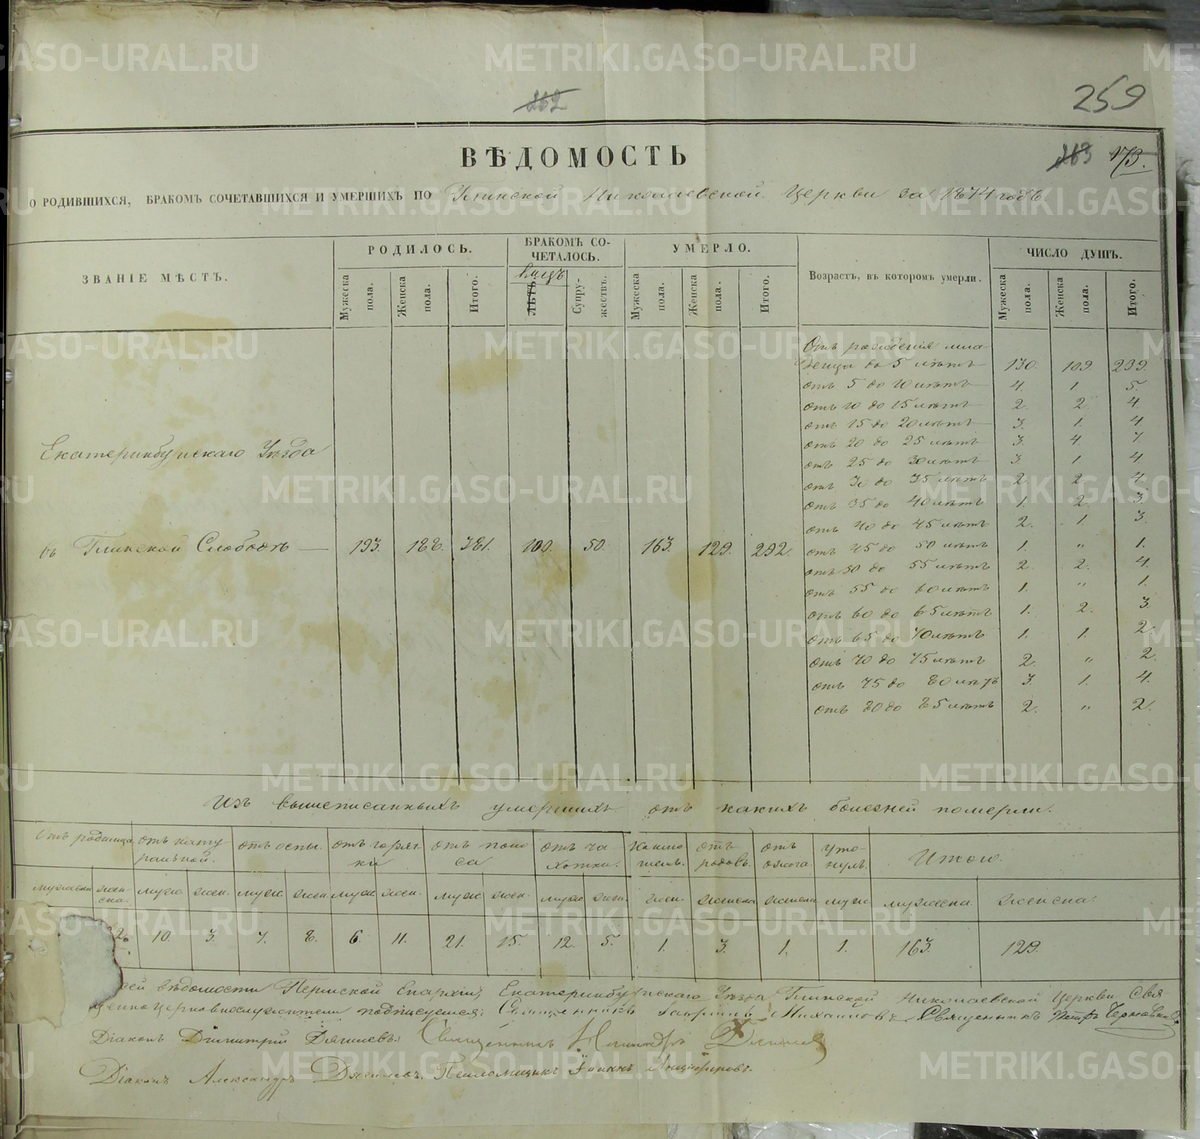 259
262
ВѢДОМОСТЬ
263 173.
О РОДИВШИХСЯ, БРАКОМЪ СОЧЕТАВШИХСЯ И УМЕРШИХЪ ПО Глинской Николаевской Церкви за 1874 годъ.
ЗВАНІЕ МѢСТЪ. РОДИЛОСЬ. БРАКОМЪ СОЧЕТАЛОСЬ. УМЕРЛО. Возрастъ, въ которомъ умерли. ЧИСЛО ДУШЪ.
Мужеска пола. Женска пола. Итого. ЛѢТЪ лицъ Супружествъ. Мужеска пола. Женска пола. Итого. Мужеска пола. Женска пола. Итого.
Отъ рожденія мла
денцы до 5 лѣтъ 130. 109. 239.
отъ 5 до 10 лѣтъ 4. 1 5.
отъ 10 до 15 лѣтъ 2. 2. 4.
отъ 15 до 20 лѣтъ 3. 1. 4.
отъ 20 до 25 лѣтъ 3. 4. 7
отъ 25 до 30 лѣтъ 3 1. 4
отъ 30 до 35 лѣтъ 2. 2.
отъ 35 до 40 лѣтъ 1. 2. 3.
отъ 40 до 45 лѣтъ 2. 1 3.
отъ 45 до 50 лѣтъ 1. " 1.
отъ 50 до 55 лѣтъ 2. 2. 4.
отъ 55 до 60 лѣтъ 1. " 1.
отъ 60 до 65 лѣтъ 1. 2. 3.
отъ 65 до 70 лѣтъ 1. 1. 2.
отъ 70 до 75 лѣтъ 2. " 2.
отъ 75 до 80 лѣтъ 3. 1. 4.
отъ 80 до 85 лѣтъ 2. " 2.
Екатеринбургскаго Уѣзда
въ Глинской Слободѣ — 193. 188. 381. 100. 50. 163. 129. 292.
Изъ вышеписанныхъ умершихъ отъ какихъ болезней померли.
Отъ родимца отъ натуральной. отъ оспы. отъ горячки отъ поноса отъ чахотки. отъ родовъ. отъ ожога утонулъ. Итого.
мужеска женска. муж. жен. муж. жен. муж. жен. муж. жен. муж. жен. жен. женска женска муж мужеска. женска.
2. 10. 3. 7. 8. 6. 11. 21. 15. 12. 5. 1. 3. 1. 1. 163. 129.
сей вѣдомости Пермской Епархіи, Екатеринбургскаго Уѣзда Глинской Николаевской Церкви Свя
щенноцерковнослужители подписуемся: Священникъ Михаиловъ Священникъ Петръ
Діаконъ Димитрій Священникъ
Діаконъ Александръ Псаломщикъ
METRIKI.GASO-URAL.RU